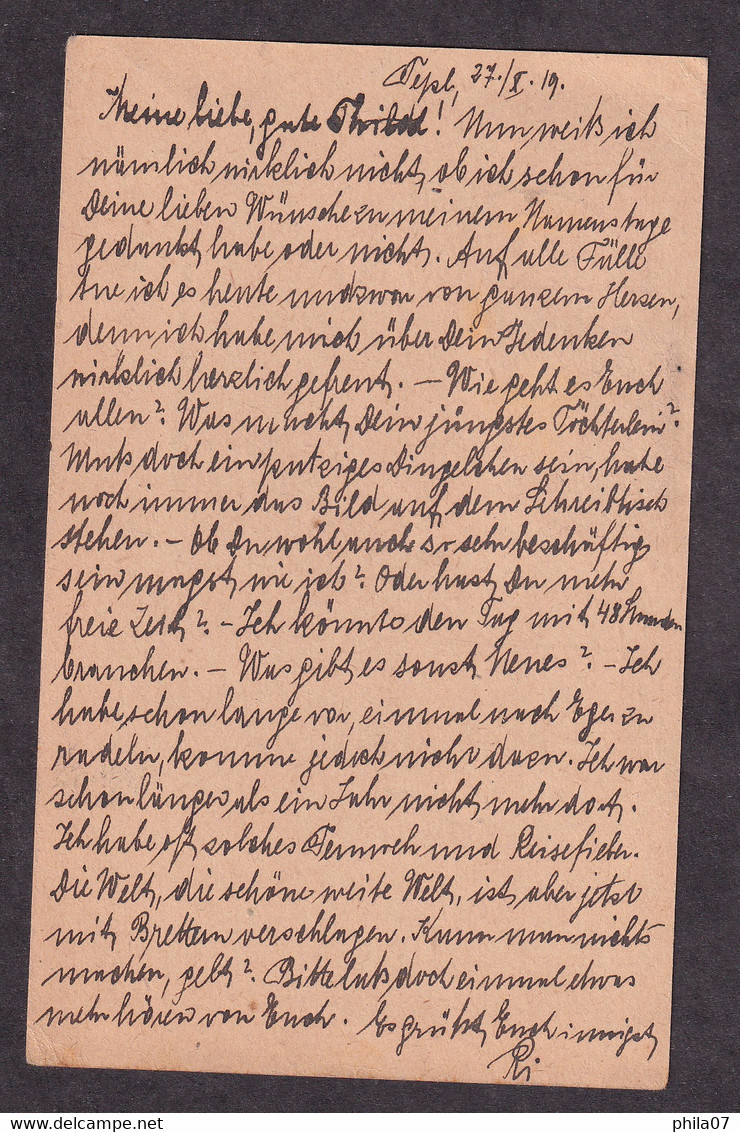 Tepl, 27./X. 19.
Meine liebe, gute ! Nun weiß ich
nämlich wirklich nicht, ob ich schon für
Deine lieben Wünsche zu meinem Namenstage
gedankt habe oder nicht. Auf alle Fälle
tue ich es heute und zwar von ganzem Herzen,
denn ich habe mich über Dein Gedenken
wirklich herzlich gefreut. – Wie geht es Euch
allen? Was macht Dein jüngstes Töchterlein?
Muß doch ein putziges Dingelchen sein, habe
noch immer das Bild auf dem Schreibtisch
stehen. – Ob Du wohl auch so sehr beschäftigt
sein magst wie ich? Oder hast Du mehr
freie Zeit? – Ich könnte den Tag mit 48 Stunden
brauchen. – Was gibt es sonst Neues? – Ich
habe schon lange vor, einmal nach Eger zu
radeln, komme jedoch nicht dazu. Ich war
schon länger als ein Jahr nicht mehr dort.
Ich habe oft solches Fernweh und Reisefieber.
Die Welt, die schöne weite Welt, ist aber jetzt
mit Brettern verschlagen. Kann man nichts
machen, gelt? Bitte laß doch einmal etwas
mehr hören von Euch. Es grüßt Euch innigst
Ri
phila07